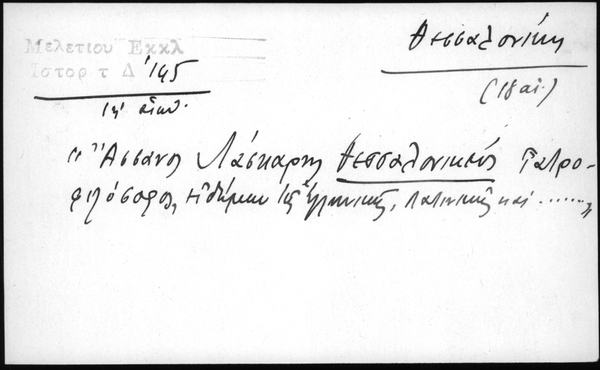 Μελετίου Εκκλ
Ιστορ τ Δ' 145
ιη' αἰων.
Θεσσαλονίκη
(18 αἰ.)
"Ἀσσάνης Λάσκαρης Θεσσαλονικεύς Ἰατρο-
φιλόσοφος, εἰδήμων τῆς ἑλληνικῆς, λατινικῆς καὶ ......."